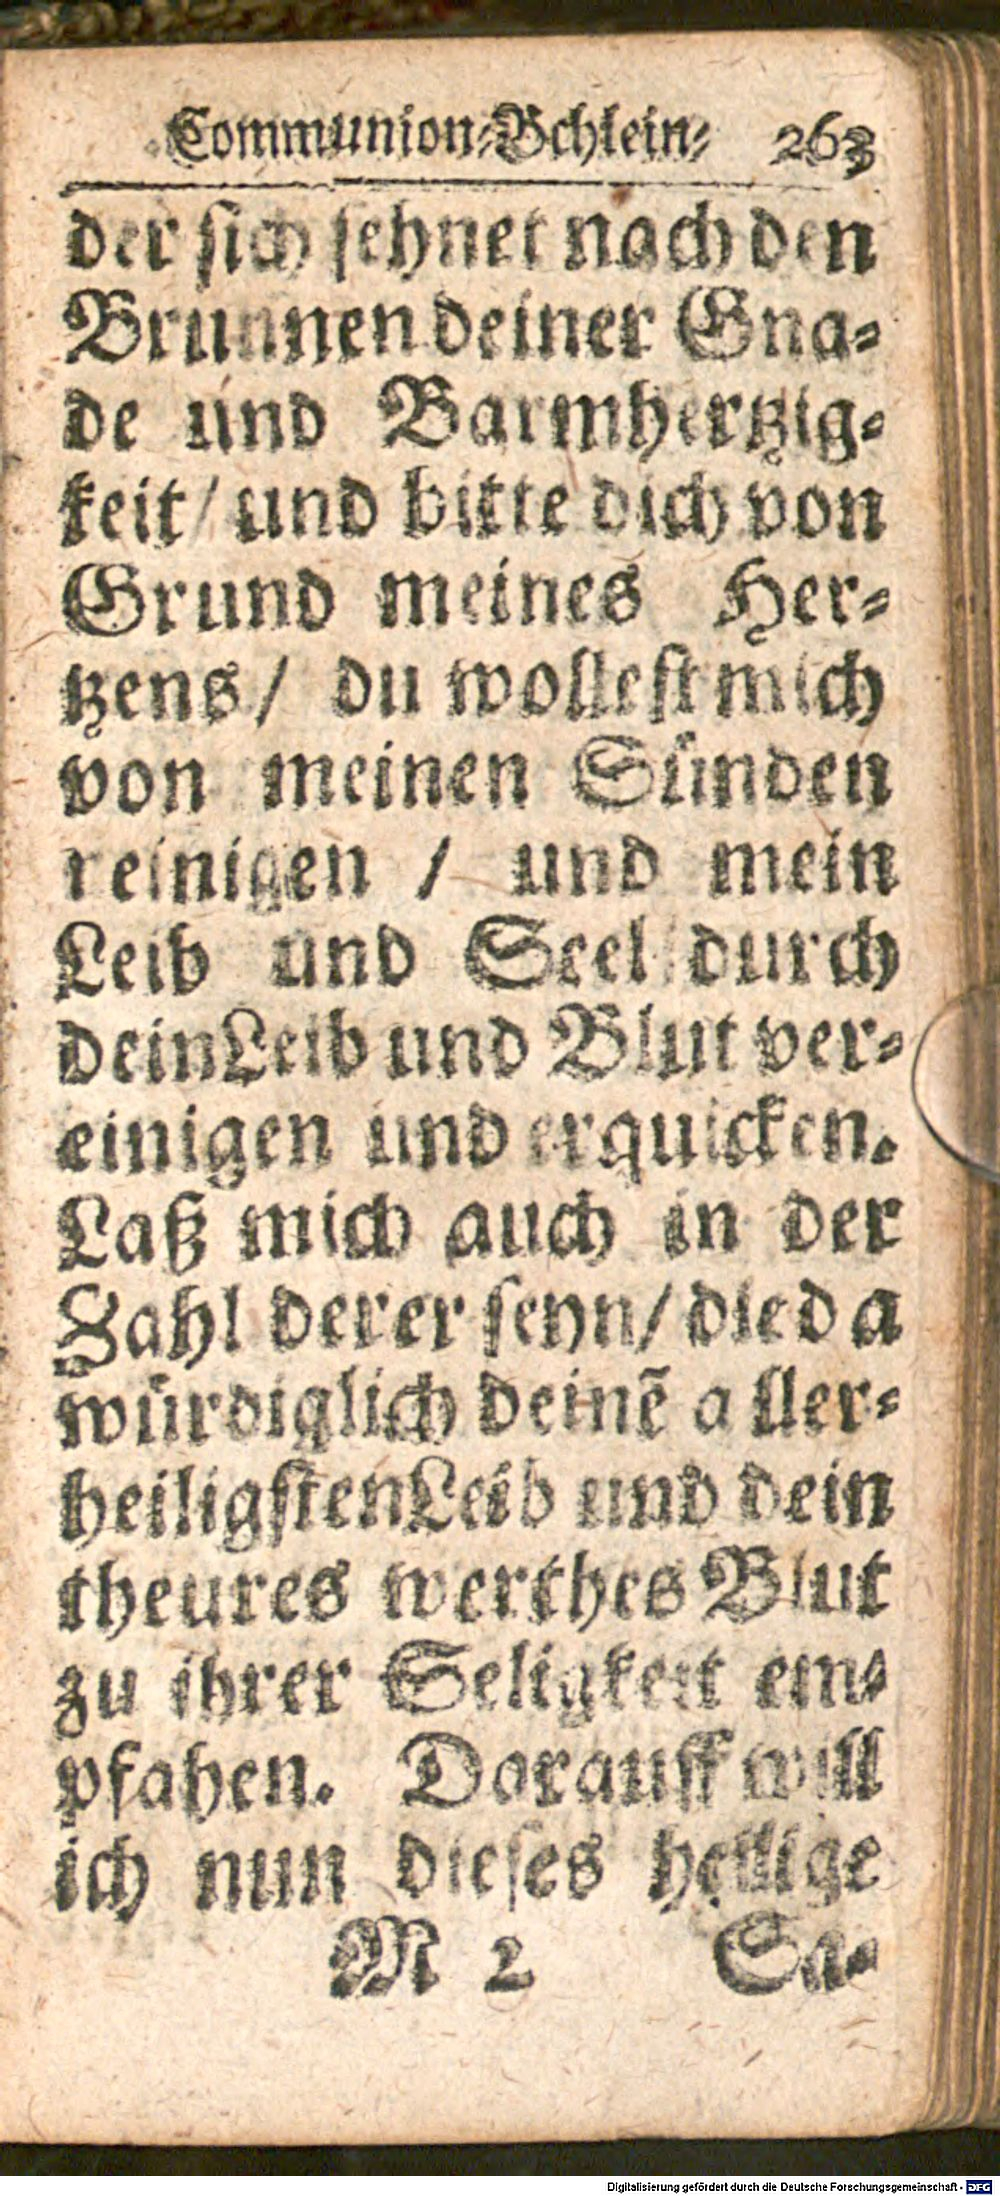 Communion-Bchlein- 263
der sich sehnet nach den
Brunnen deiner Gna-
de und Barmhertzig-
keit / und bitte dich von
Grund meines Her-
tzens / du wollest mich
von meinen Sünden
reinigen / und mein
Leib und Seel durch
dein Leib und Blut ver-
einigen und erquicken.
Laß mich auch in der
Zahl derer seyn / die da
würdiglich deinē aller-
heiligsten Leib und dein
theures werthes Blut
zu ihrer Seligkeit em-
pfahen. Darauff will
ich nun dieses heilige
M 2 Sa-
Digitalisierung gefördert durch die Deutsche Forschungsgemeinschaft - DFG